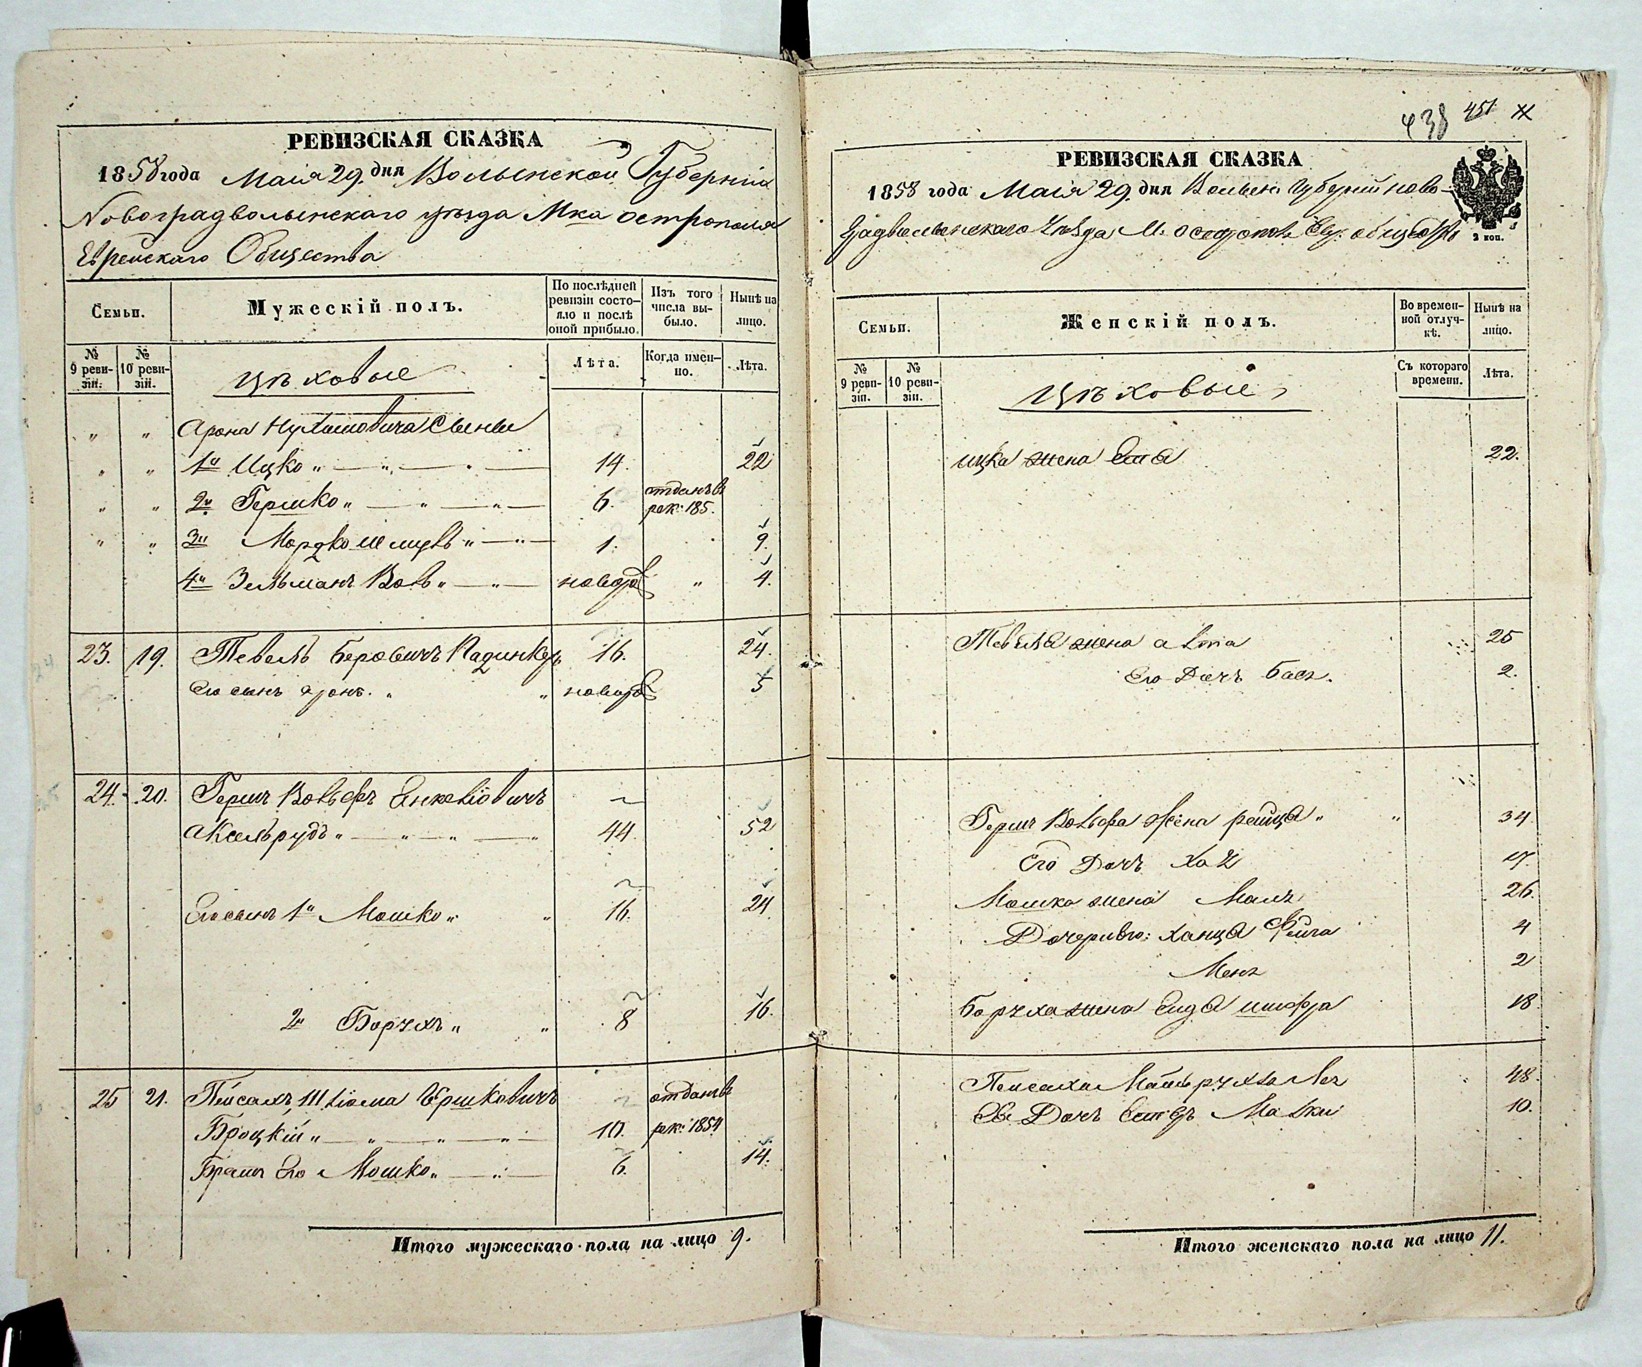 РЕВИЗСКАЯ СКАЗКА
1858 года Маія 29. дня Волынской Губерніи
Новоградволынскаго уѣзда Мка острополя
Еврейскаго Общества
Семьи.
Мужескій полъ.
По послѣдней ревизіи состояло и послѣ оной прибыло.
Изъ того числа выбыло.
Нынѣ на лицо.
№ 9 ревизіи.
№ 10 ревизіи.
Цѣховые
Лѣта.
Когда именно.
Лѣта.
„ „ Арона Нухимовича Сыновья
„ „ 1й Ицко „ 14. 22
„ „ 2й Гершко „ 6. отданъ въ
рек: 185.
„ „ 3й Мордко „ 1. 9.
4й Зельманъ Вольъ „ новор „ 4.
23. 19. Тевель Беровичъ 16. 24.
Его сынъ аронъ. „ „ новор 5
24. 20. Герш Вольфъ Янкелiовичъ
Аксельрудъ „ 44. 52
Его сынъ 1й Мошко „ „ 16. 24
2й Борухъ „ „ 8 16.
25 21. Пейсахъ Шлiома Гершковичъ отданъ въ
Броцкій „ 10. рек: 1854
Братъ Его Мошко „ 6. 14.
Итого мужескаго пола на лицо 9.
438 451
РЕВИЗСКАЯ СКАЗКА
1858 года Маія 29. дня Волын: Губерніи ново-
градволынскаго Уѣзда М. острополя Евр: общества
2 коп.
Семьи.
Женскій полъ.
Во временной отлучкѣ.
Нынѣ на лицо.
№ 9 ревизіи.
№ 10 ревизіи.
Цѣховые
Съ котораго времени.
Лѣта.
ицка жена 22.
Тевеля жена 25
Его Дочь Бася. 2.
Герш Вольфа Жена рейца „ „ 34
Его Дочь Хая 17.
Мошка жена Маля 26.
Дочери его: ханца Фейга 4
2
Боруха жена шифра 18
Пейсаха Мать рухля Лея 48.
Ее Дочь Естеръ Малки 10.
Итого женскаго пола на лицо 11.